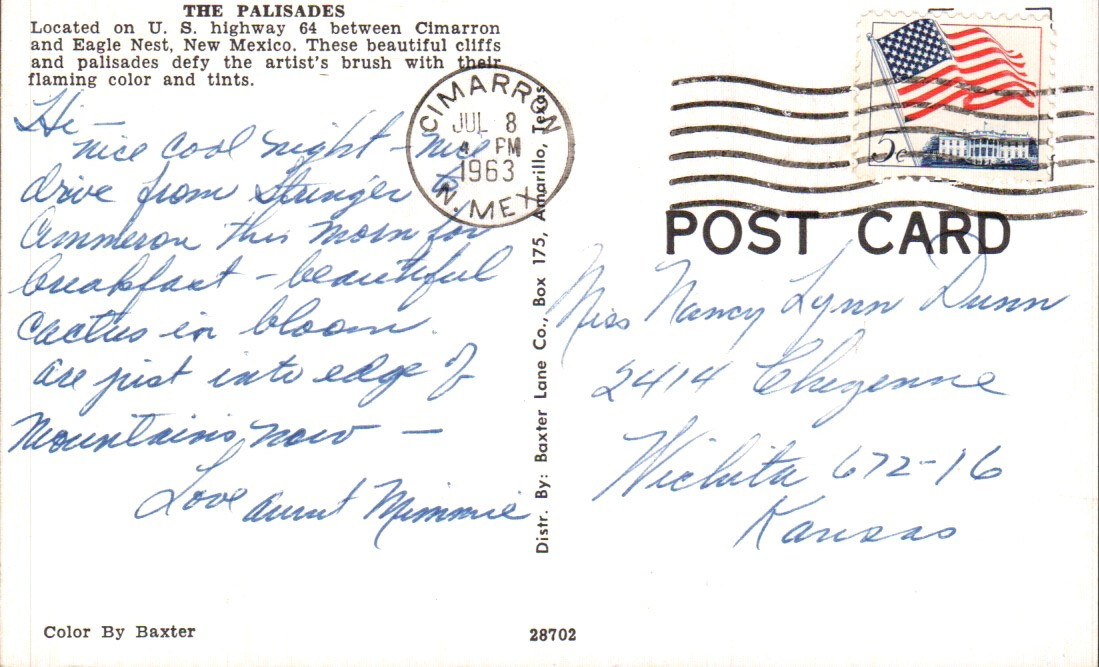 THE PALISADES
Located on U. S. highway 64 between Cimarron
and Eagle Nest, New Mexico. These beautiful cliffs
and palisades defy the artist's brush with their
flaming color and tints.
Hi –
nice cool night – nice
drive from Stringer to
Cimmeron this morn for
breakfast – beautiful
cactus in bloom.
are just into edge of
Mountains now –
Love Aunt Mimmie
CIMARRON
JUL 8
4 PM
1963
N. MEX.
Distr. By: Baxter Lane Co., Box 175, Amarillo, Texas
5c
POST CARD
Miss Nancy Lynn Dunn
2414 Cheyenne
Wichita 672-16
Kansas
Color By Baxter
28702